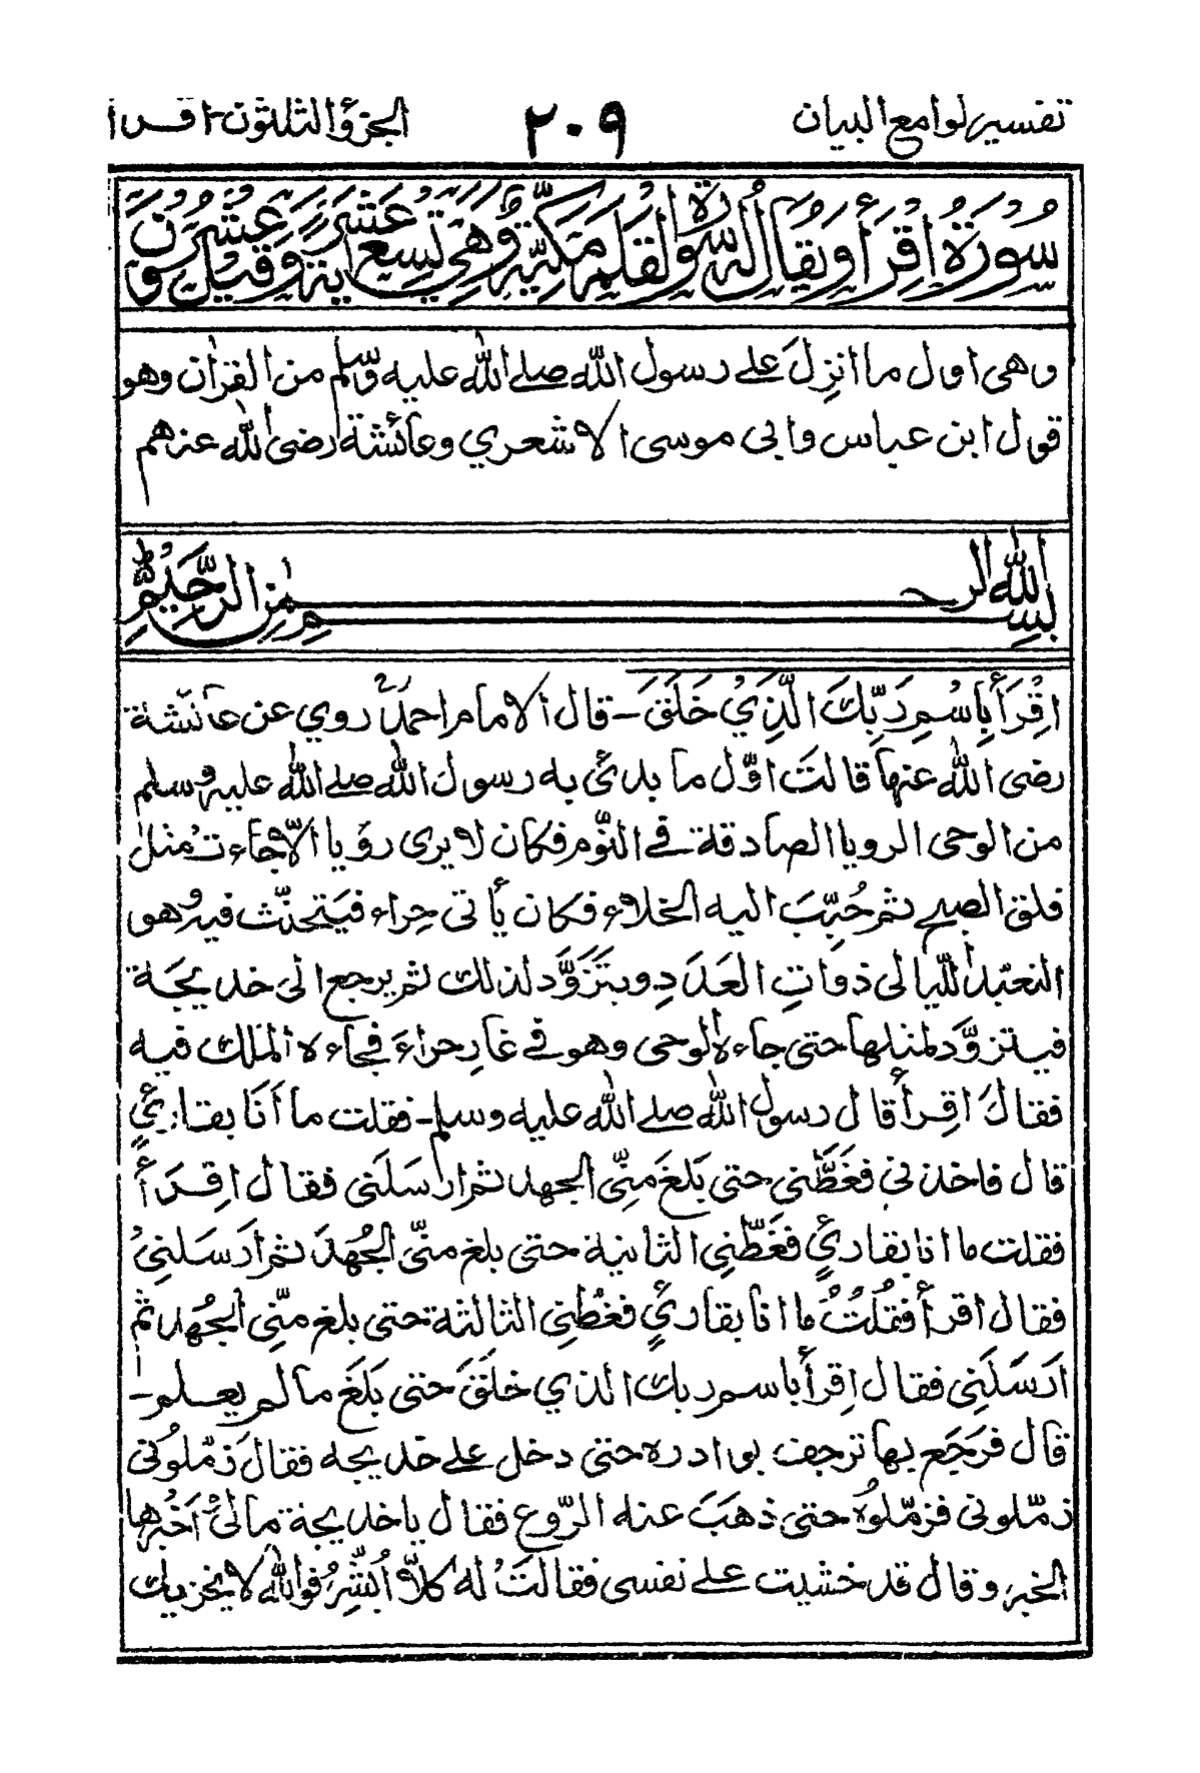 تفسير لوامع البيان ٢٠٩ الجزؤ الثلثون - اقرا
سُورَةُ اِقْرَأ وَيُقَالُ لَهُ سُورَةُ القَلَمِ مَكِّيَّةٌ وَهِيَ تِسْعَ عَشَرَةَ ايَةً وَقِيْلَ عِشْرُوْنَ
وهى اول ما انزِلَ علے رسول الله صلے الله عليه وسلم من القرأن وهو
قول ابن عباس وابى موسى الاشعري وعائشة رضى الله عنهم
بسم الله الرحمن الرحيم
اِقْرَأْ بِاسْمِ رَبِّكَ الَّذِيْ خَلَقَ - قال الامام احمدؒ روي عن عائشة
رضى الله عنها قالتَ اوّل ما بدئ به رسول الله صلے الله عليه وسلم
من الوحى الرويا الصادقة فے النّوم فكان لا يرى رؤيا الّا جاءت مثل
فلق الصبح ثم حُبِّبَ اليه الخلاء فكان يأتى حِراء فيَتحنّث فيه وهو
التعبّد الليالى ذواتِ العَدَدِ ويتَزَوَّد لذلك ثم يرجع الى خديجَة
فيتزوَّد لمثلها حتى جاءه الوحى وهو فے غارِ حراءَ فجاءه الملك فيه
فقالَ اقِرأ قال رسول الله صلے الله عليه وسلم - فقلت ما أنَا بقارئٍ
قال فاخذنى فغَطَّنى حتى بَلَغَ مِنِّى الجهد ثم ارسَلَنى فقال اقِرَأ
فقلت ما انا بقارئٍ فغَطّنِى الثانية حتى بلغ منّى الجُهدَ ثم ارَسَلنِىْ
فقال اقرأ فقُلتُ ما انا بقارئٍ فغُطنِى الثالثة حتى بلغ منِّى الجُهد ثم
ارَسَلَنِى فقال اِقرأ باسم ربك الذي خلَقَ حتى بَلَغَ ما لم يعلم -
قال فرَجَع بها ترجف بوادره حتى دخل علے خديجه فقالَ زمّلُونى
زمّلونى فزمّلوُه حتى ذهَبَ عنه الرّوع فقال يا خديجة مالىْ أخبُرها
الخبر وقال قد خشيت علے نفسى فقالتَ لهُ كلاّ اُبَشِّرُ فوالله لا يخزيك